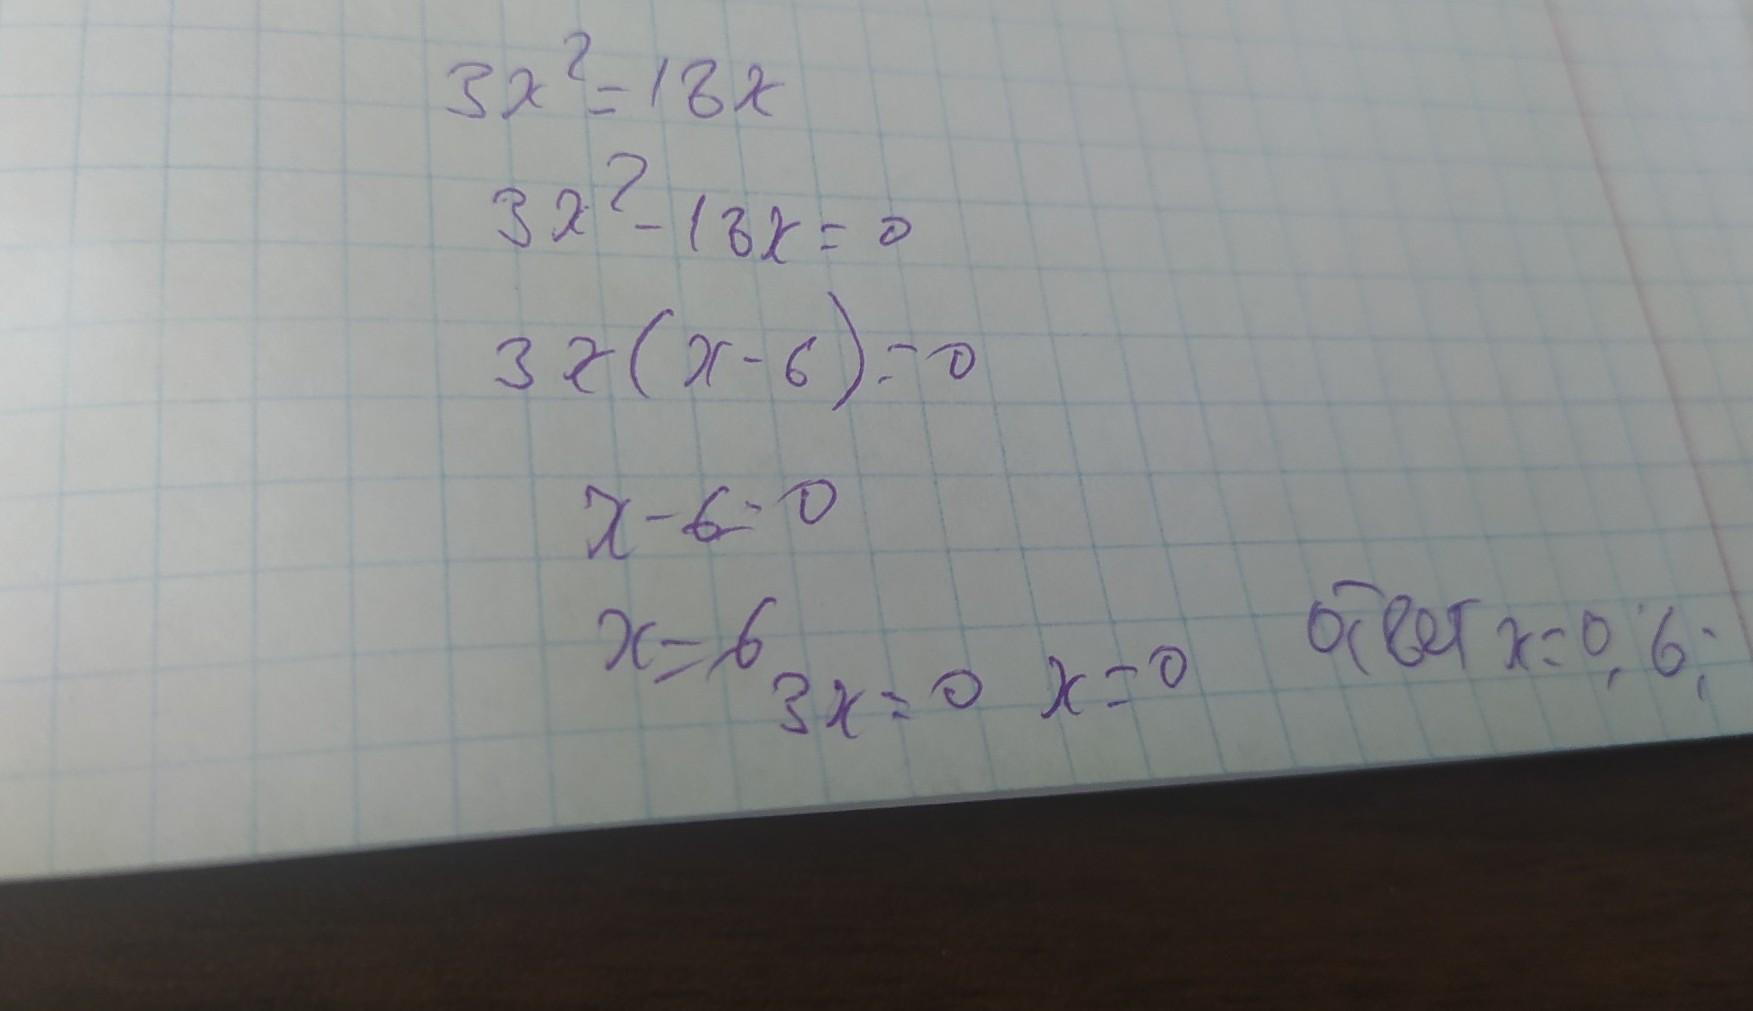 3x² = 18x
3x² - 18x = 0
3x(x - 6) = 0
x - 6 = 0
x = 6
3x = 0 x = 0
Ответ x = 0; 6;